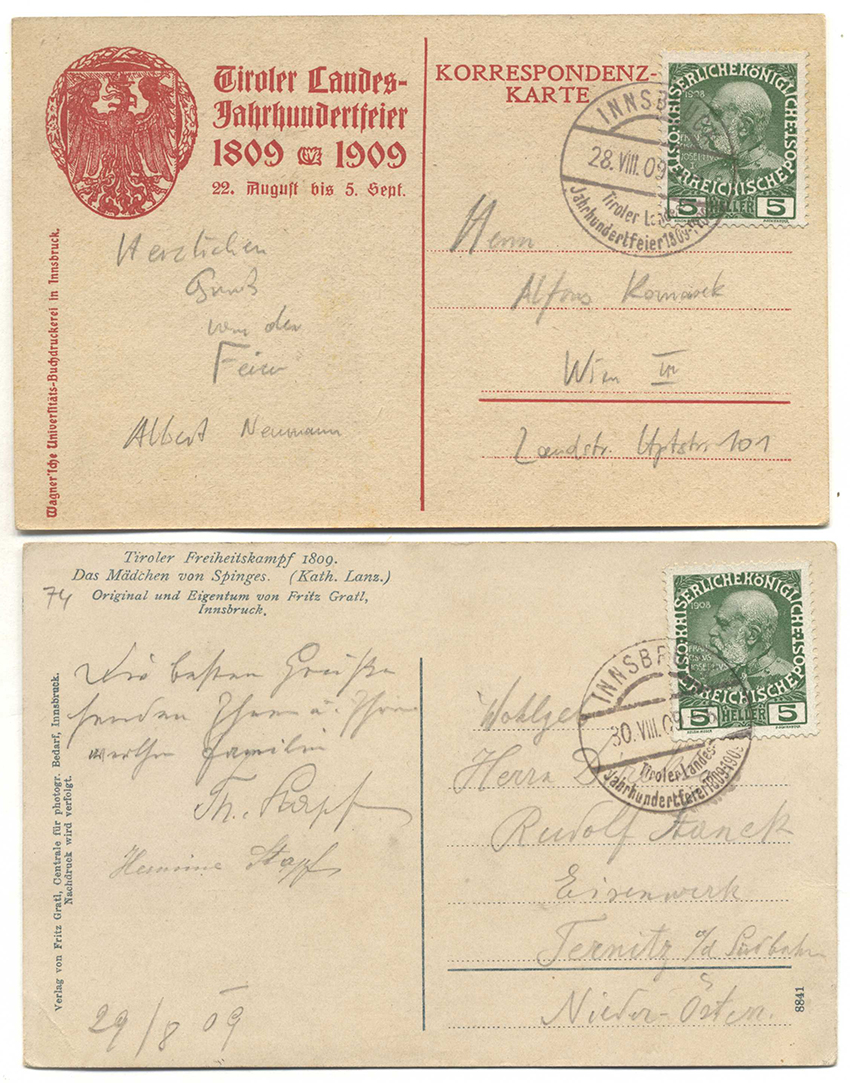 Tiroler Landes-
Jahrhundertfeier
1809 1909
22. August bis 5. Sept.
Wagner'sche Universitäts-Buchdruckerei in Innsbruck.
Herzlichen
Gruß
von der
Feier
Albert Neumann
KORRESPONDENZ-
KARTE
KAISERLICHE KÖNIGLICHE
ÖSTERREICHISCHE POST
1908
5 HELLER 5
INNSBRUCK
28.VIII.09
Tiroler Landes-
Jahrhundertfeier 1809-1909
Herrn
Alfons Komarek
Wien III
Landstr. Hptstr. 101
Tiroler Freiheitskampf 1809.
Das Mädchen von Spinges. (Kath. Lanz.)
Original und Eigentum von Fritz Gratl,
Innsbruck.
74
Verlag von Fritz Gratl, Centrale für photogr. Bedarf, Innsbruck.
Nachdruck wird verfolgt.
Die besten Grüße
senden Ihnen u. Ihrer
werthen Familie
Th. Stapf
Hermine Stapf
29/8 09
KAISERLICHE KÖNIGLICHE
ÖSTERREICHISCHE POST
1908
5 HELLER 5
INNSBRUCK
30.VIII.09
Tiroler Landes-
Jahrhundertfeier 1809-1909
Wohlgeb
Herrn
Rudolf Stanek
Eisenwerk
Ternitz a/d Südbahn
Nieder-Österr.
8841